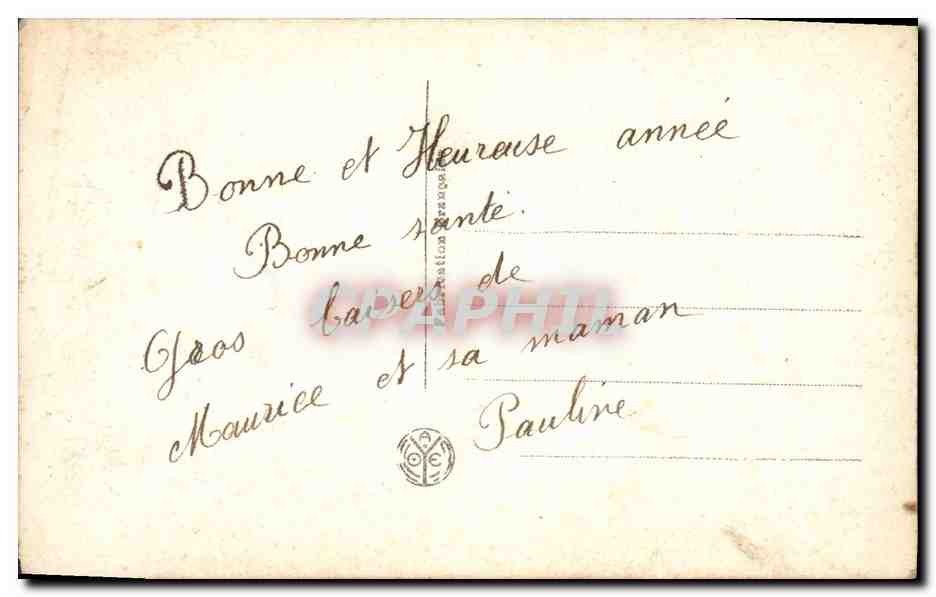 Bonne et Heureuse année
Bonne santé.
Gros baisers de
Maurice et sa maman
Pauline
Fabrication Française
CPAPHIL